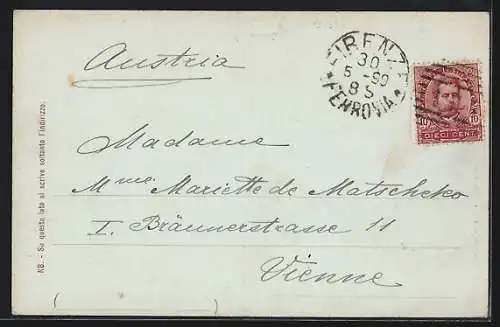 Austria
FIRENZE
30
5 -99
8 S
* FERROVIA *
10 10
DIECI CENT.
Madame
Mme Mariette de Matscheko
I. Bräunerstrasse 11
Vienne
NB. - Su questo lato si scrive soltanto l'indirizzo.
( )